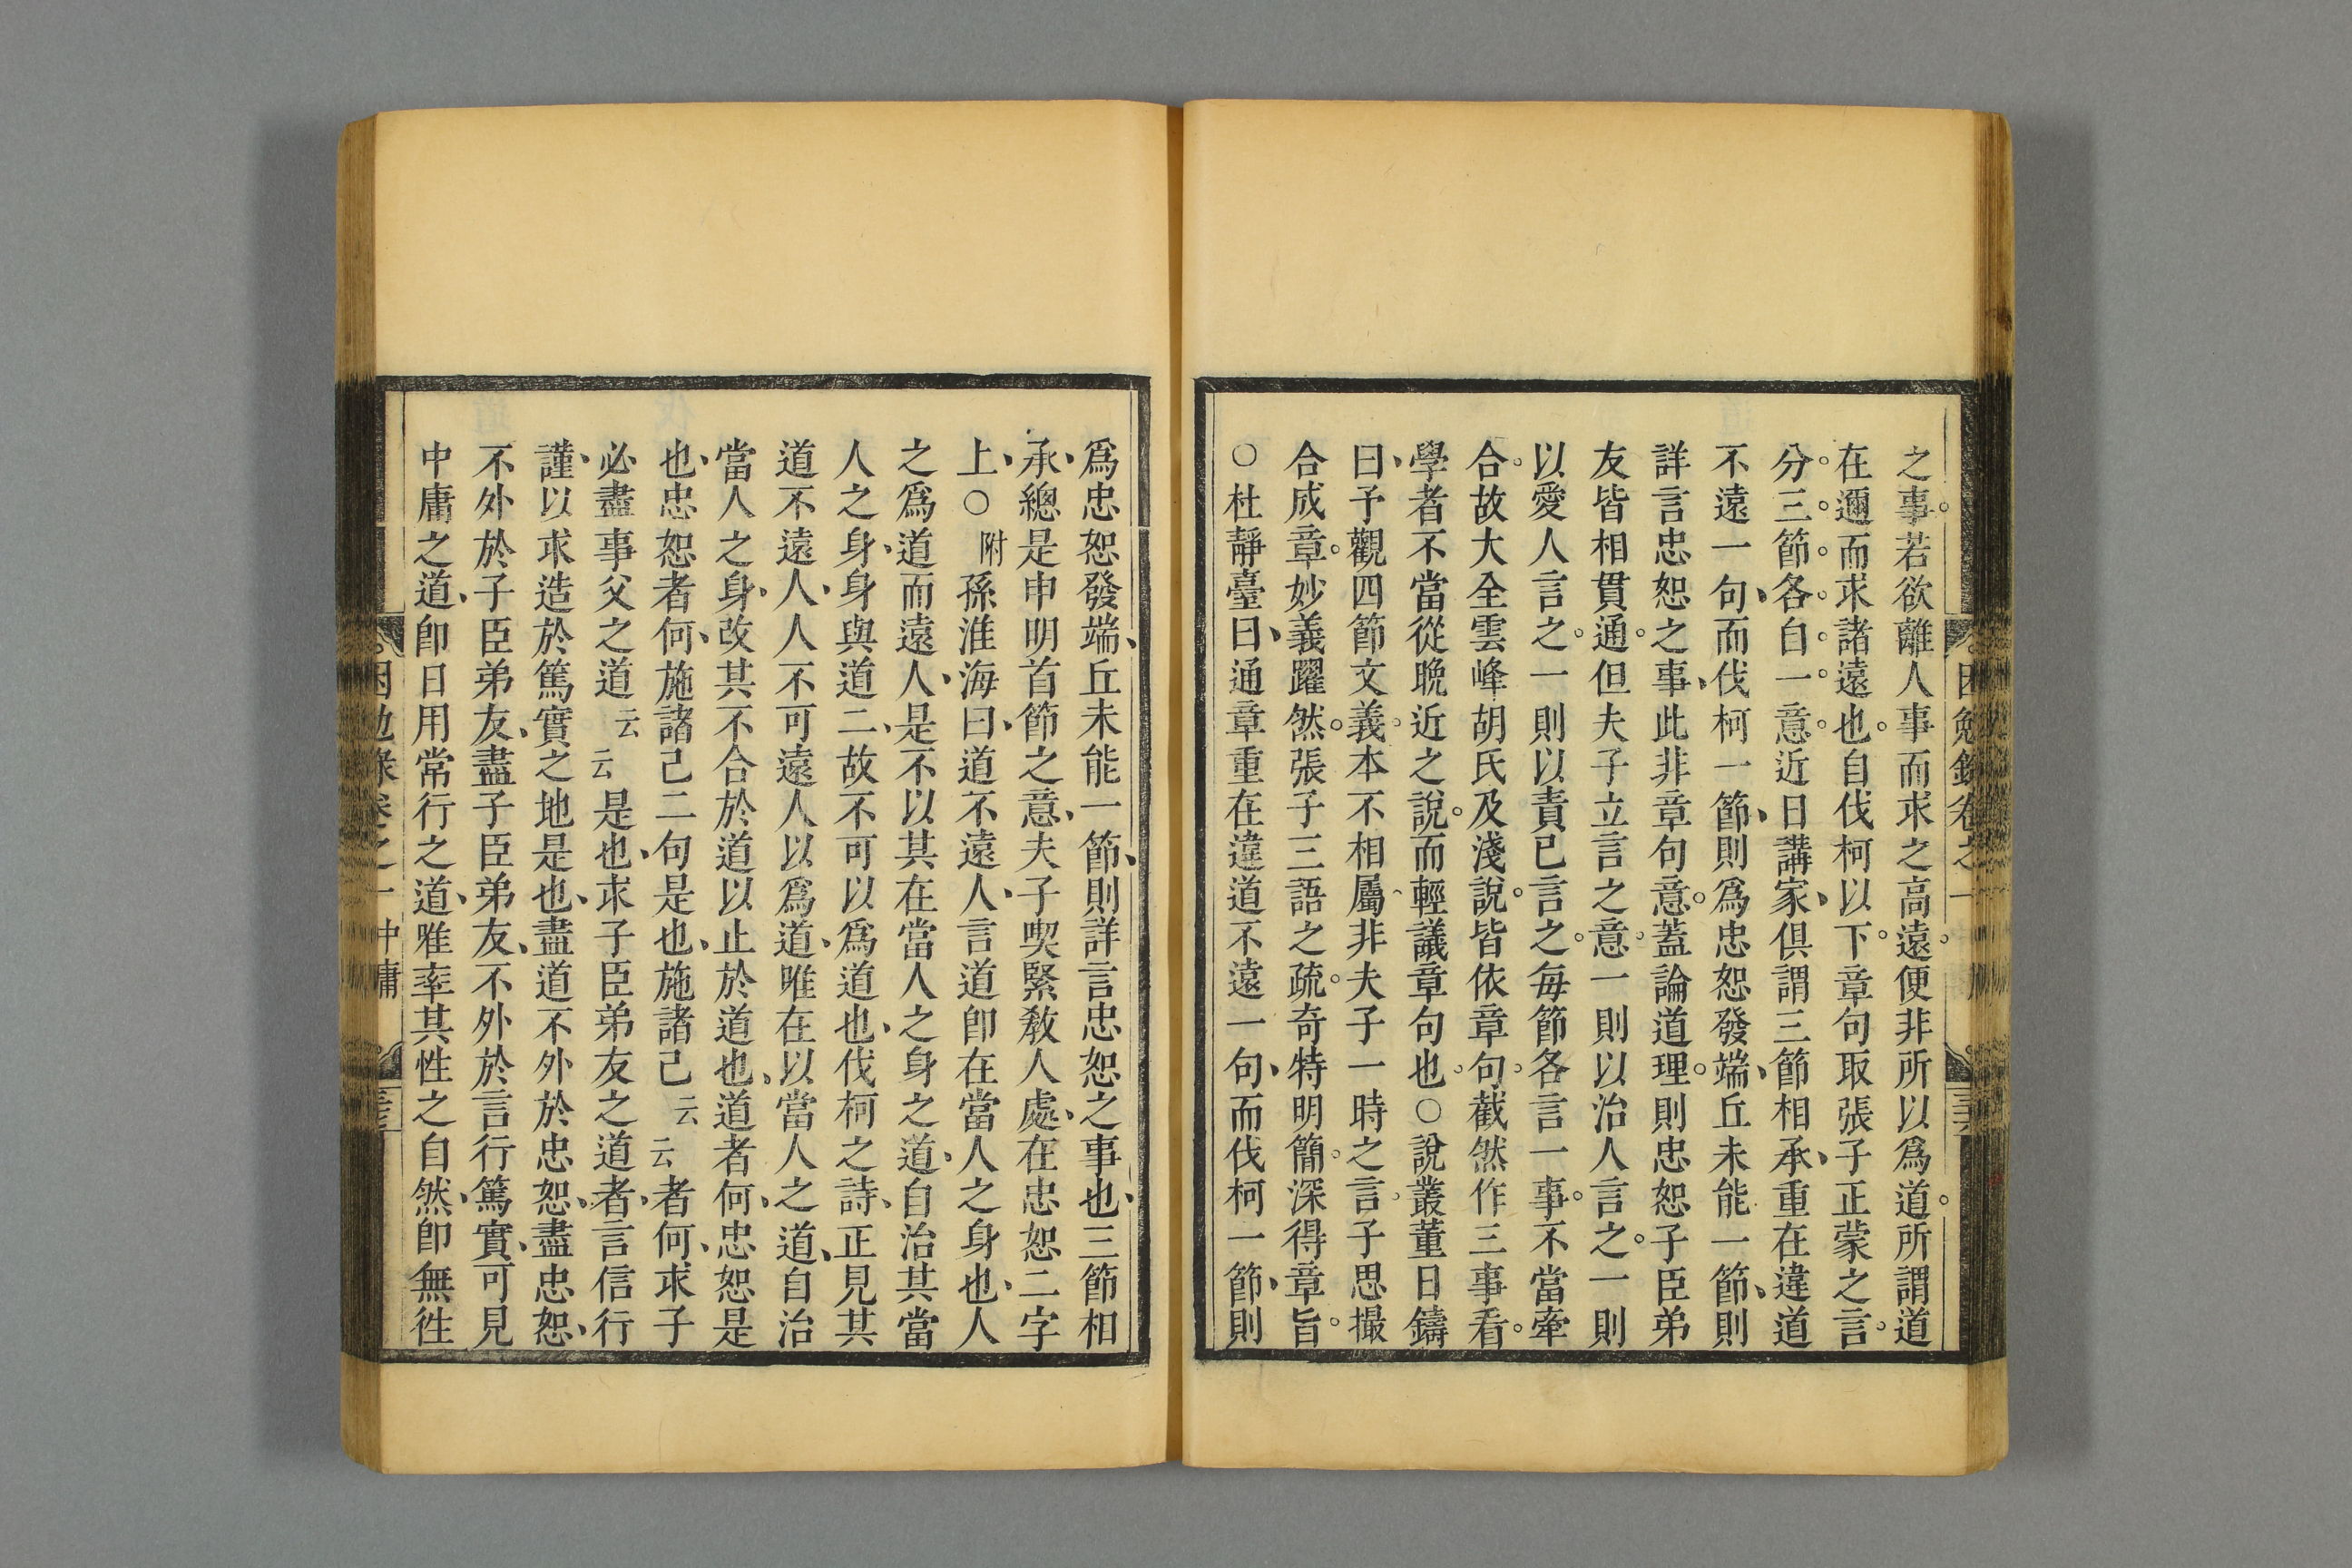 之事。若欲離人事而求之高遠。便非所以爲道。所謂道
在邇而求諸遠也。自伐柯以下。章句取張子正蒙之言。
分。三。節。各。自。一。意。近日講家、俱謂三節相承、重在違道
不遠一句、而伐柯一節、則爲忠恕發端、丘未能一節、則
詳言忠恕之事、此非章句意。蓋論道理。則忠恕子臣弟
友皆相貫通。但夫子立言之意。一則以治人言之。一則
以愛人言之。一則以責已言之。每節各言一事。不當牽
合。故大全雲峰胡氏及淺說。皆依章句。截然作三事看。
學者不當從晩近之說。而輕議章句也。○說叢董日鑄
曰、予觀四節文義、本不相屬、非夫子一時之言、子思撮
合成章。妙義躍然。張子三語之疏。奇特明簡。深得章旨。
○杜靜臺曰、通章重在違道不遠一句、而伐柯一節、則
爲忠恕發端、丘未能一節、則詳言忠恕之事也、三節相
承、總是申明首節之意、夫子喫緊教人處、在忠恕二字
上、○附孫淮海曰、道不遠人、言道卽在當人之身也、人
之爲道而遠人、是不以其在當人之身之道、自治其當
人之身、身與道二、故不可以爲道也、伐柯之詩、正見其
道不遠人、人不可遠人以爲道、唯在以當人之道、自治
當人之身、改其不合於道以止於道也、道者何、忠恕是
也、忠恕者何、施諸己二句是也、施諸己云云者何、求子
必盡事父之道云云是也、求子臣弟友之道者、言信行
謹、以求造於篤實之地是也、盡道不外於忠恕、盡忠恕、
不外於子臣弟友、盡子臣弟友、不外於言行篤實、可見
中庸之道、卽日用常行之道、唯率其性之自然、卽無徃
困勉錄卷之一 中庸